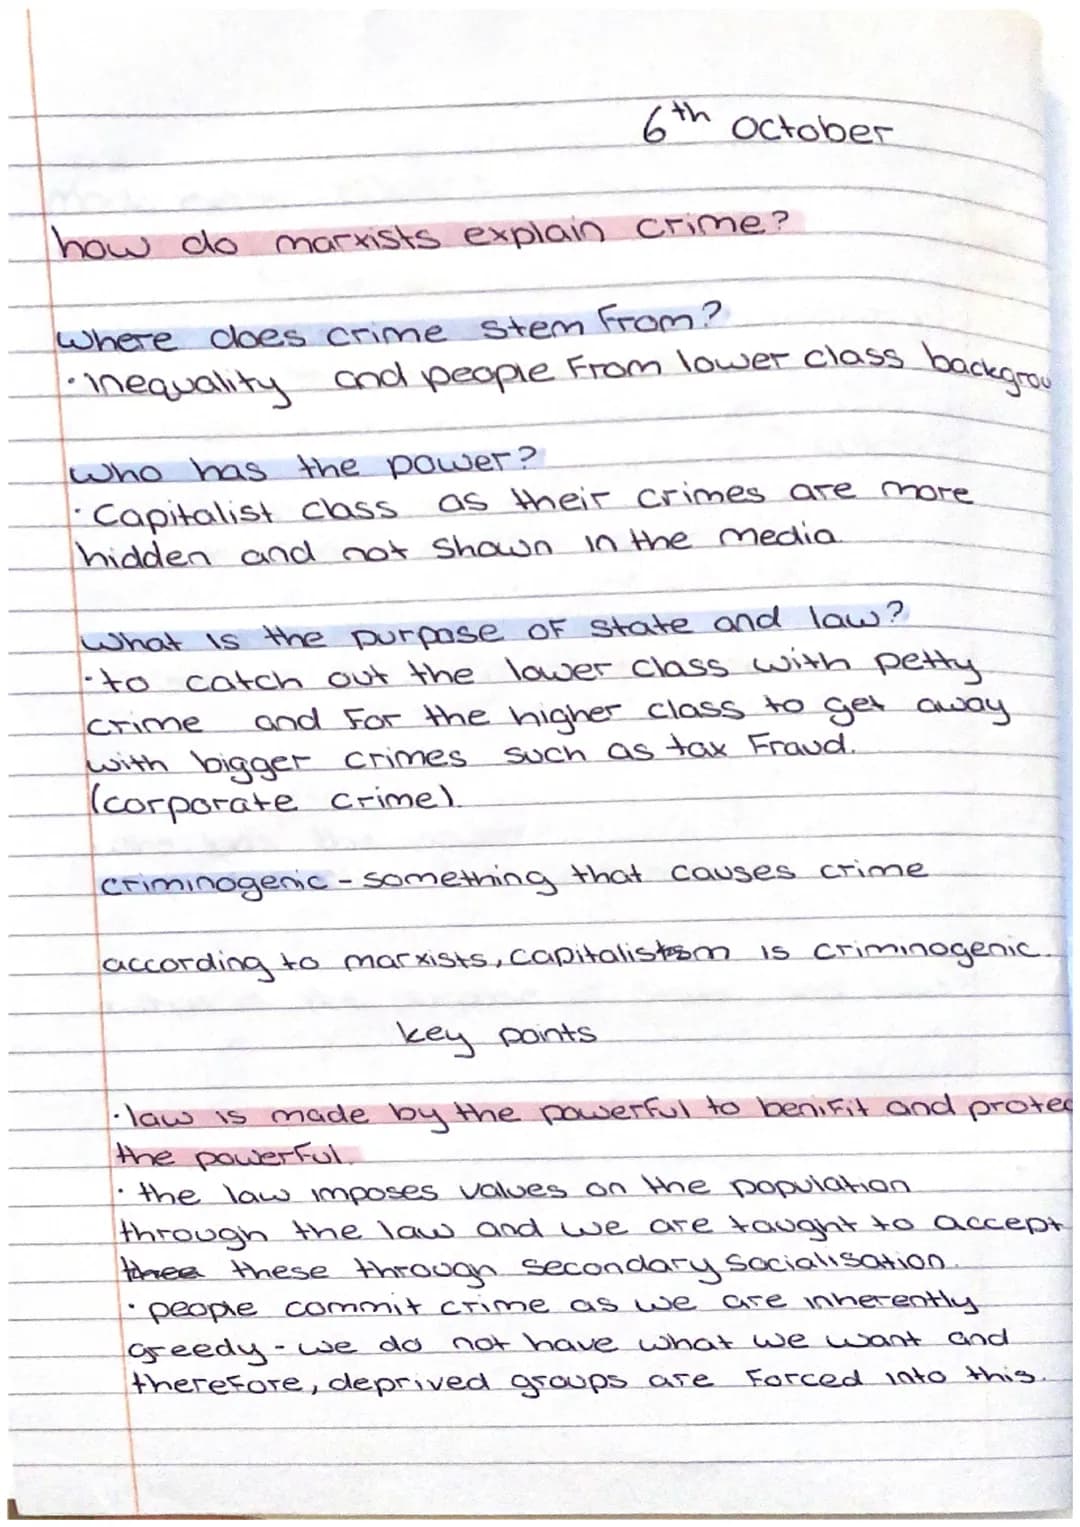 6th October
how do marxists explain crime?
where does crime stem from?
· inequality and people from lower class backgrou
who has the power?
· Capitalist class as their crimes are more
hidden and not shown in the media
what is the purpose of state and law?
· to catch out the lower class with petty
crime and for the higher class to get away
with bigger crimes such as tax fraud.
(corporate crime).
criminogenic - something that causes crime
according to marxists, capitalism is criminogenic.
key points
· law is made by the powerful to benifit and protec
the powerful.
· the law imposes values on the population
through the law and we are taught to accept
these through secondary socialisation.
· people commit crime as we are inherently
greedy - we do not have what we want and
therefore, deprived groups are forced into this.